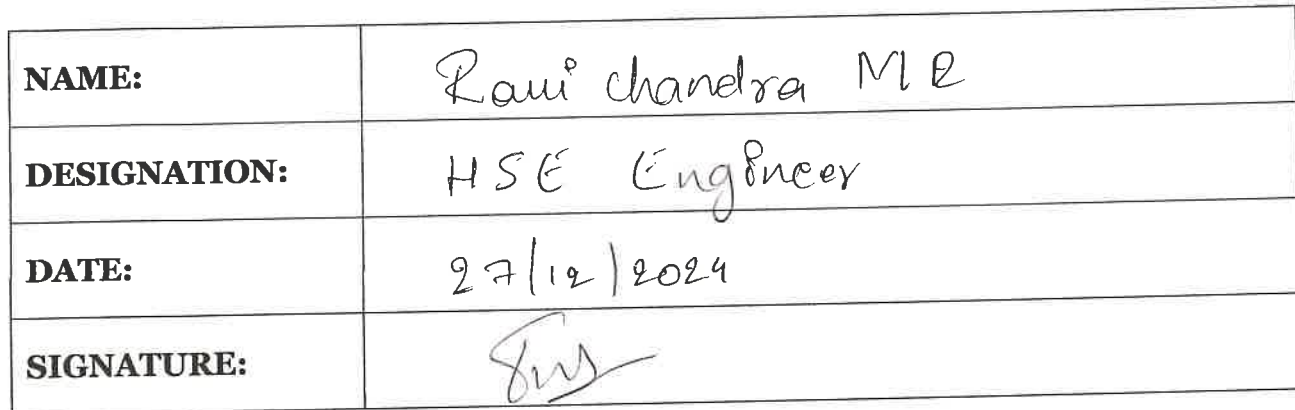 NAME: Ravi chandra M R
DESIGNATION: HSE Engineer
DATE: 27/12/2024
SIGNATURE: